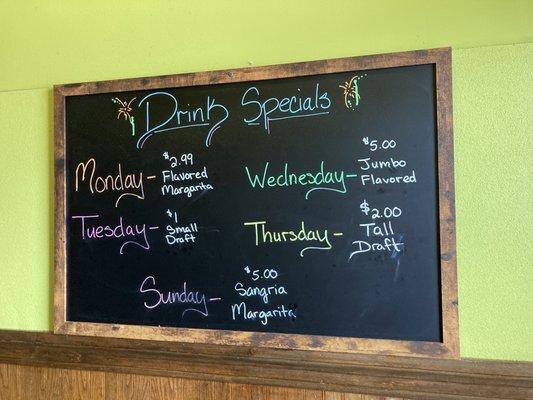 Drink Specials
Monday - $2.99
Flavored
Margarita
Wednesday - $5.00
Jumbo
Flavored
Tuesday - $1
Small
Draft
Thursday - $2.00
Tall
Draft
Sunday - $5.00
Sangria
Margarita